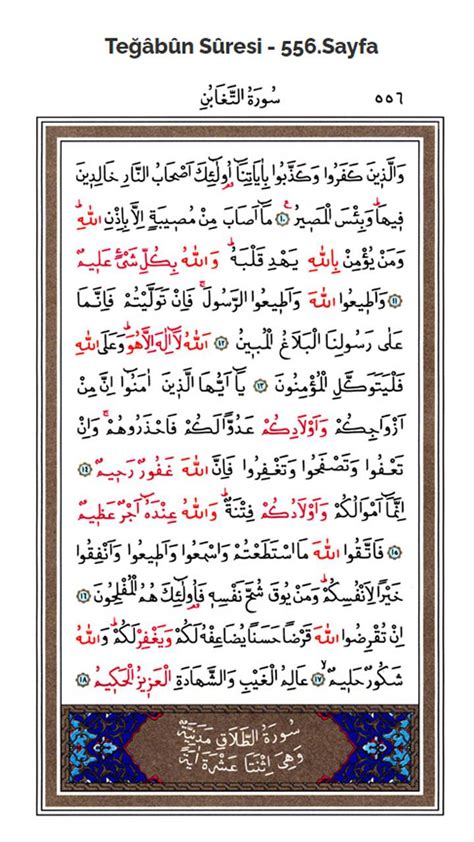 Teğâbûn Sûresi - 556.Sayfa
سُورَةُ التَّغَابُنِ ٥٥٦
وَالَّذ۪ينَ كَفَرُوا وَكَذَّبُوا بِاٰيَاتِنَٓا اُو۬لٰٓئِكَ اَصْحَابُ النَّارِ خَالِد۪ينَ
ف۪يهَاۜ وَبِئْسَ الْمَص۪يرُ۟ ﴿١٠﴾ مَٓا اَصَابَ مِنْ مُص۪يبَةٍ اِلَّا بِاِذْنِ اللّٰهِۜ
وَمَنْ يُؤْمِنْ بِاللّٰهِ يَهْدِ قَلْبَهُۜ وَاللّٰهُ بِكُلِّ شَيْءٍ عَل۪يمٌ
﴿١١﴾ وَاَط۪يعُوا اللّٰهَ وَاَط۪يعُوا الرَّسُولَۚ فَاِنْ تَوَلَّيْتُمْ فَاِنَّمَا
عَلٰى رَسُولِنَا الْبَلَاغُ الْمُب۪ينُ ﴿١٢﴾ اَللّٰهُ لَٓا اِلٰهَ اِلَّا هُوَۜ وَعَلَى اللّٰهِ
فَلْيَتَوَكَّلِ الْمُؤْمِنُونَ ﴿١٣﴾ يَٓا اَيُّهَا الَّذ۪ينَ اٰمَنُٓوا اِنَّ مِنْ
اَزْوَاجِكُمْ وَاَوْلَادِكُمْ عَدُوًّا لَكُمْ فَاحْذَرُوهُمْۚ وَاِنْ
تَعْفُوا وَتَصْفَحُوا وَتَغْفِرُوا فَاِنَّ اللّٰهَ غَفُورٌ رَح۪يمٌ ﴿١٤﴾
اِنَّمَٓا اَمْوَالُكُمْ وَاَوْلَادُكُمْ فِتْنَةٌۜ وَاللّٰهُ عِنْدَهُٓ اَجْرٌ عَظ۪يمٌ
﴿١٥﴾ فَاتَّقُوا اللّٰهَ مَا اسْتَطَعْتُمْ وَاسْمَعُوا وَاَط۪يعُوا وَاَنْفِقُوا
خَيْرًا لِاَنْفُسِكُمْۜ وَمَنْ يُوقَ شُحَّ نَفْسِه۪ فَاُو۬لٰٓئِكَ هُمُ الْمُفْلِحُونَ ﴿١٦﴾
اِنْ تُقْرِضُوا اللّٰهَ قَرْضًا حَسَنًا يُضَاعِفْهُ لَكُمْ وَيَغْفِرْ لَكُمْۜ وَاللّٰهُ
شَكُورٌ حَل۪يمٌۙ ﴿١٧﴾ عَالِمُ الْغَيْبِ وَالشَّهَادَةِ الْعَز۪يزُ الْحَك۪يمُ ﴿١٨﴾
سُورَةُ الطَّلَاقِ مَدَنِيَّةٌ
وَهِيَ اِثْنَتَا عَشْرَةَ اٰيَةً